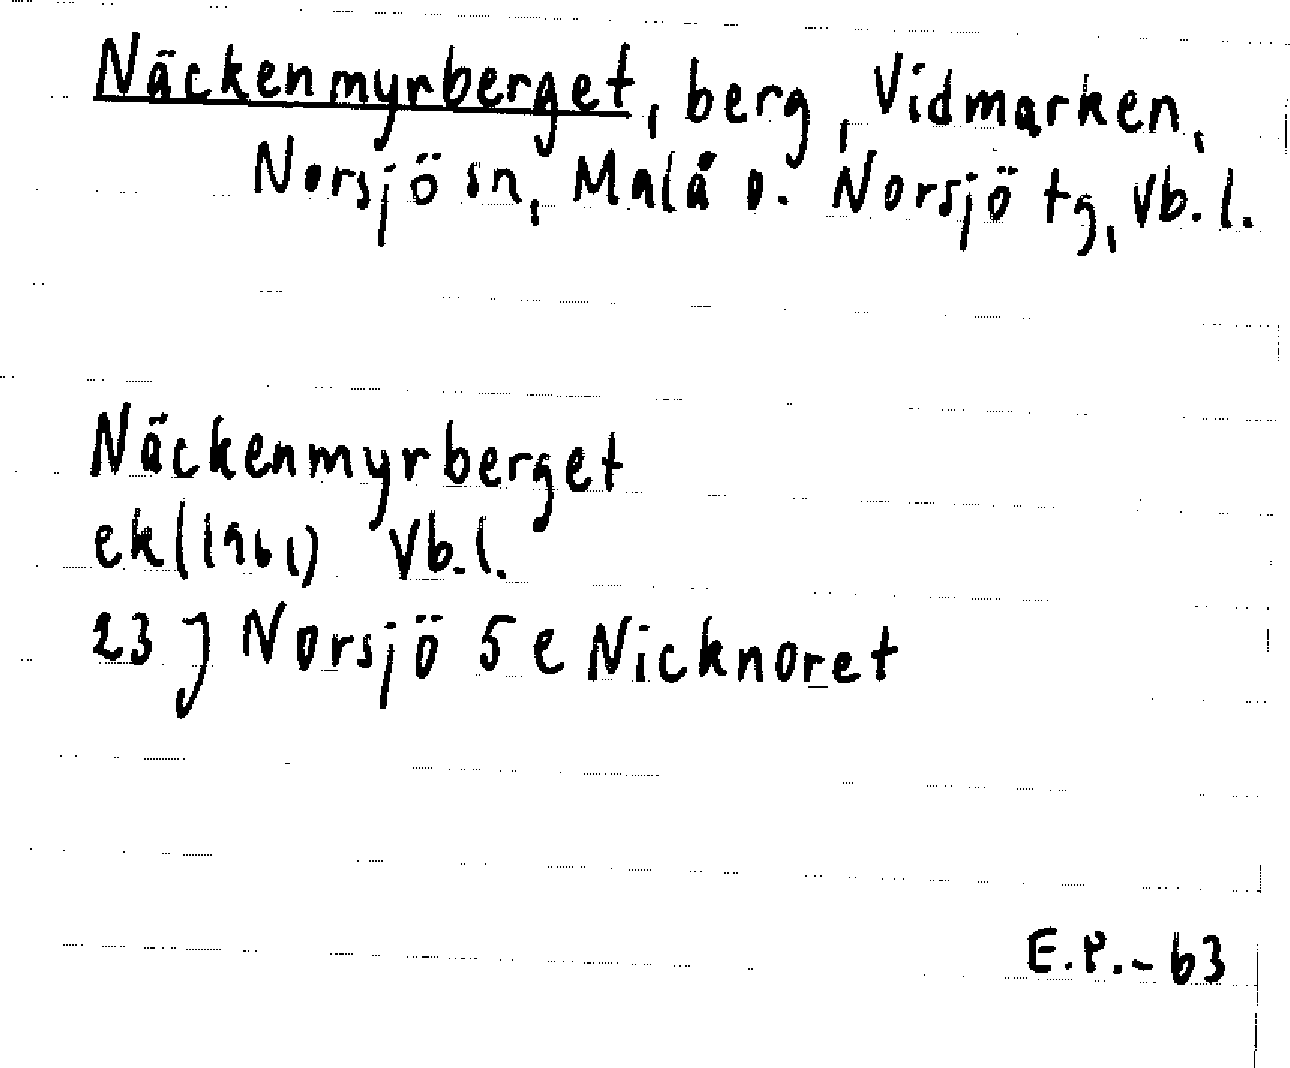 Näckenmyrberget, berg, Vidmarken,
Norsjö sn, Malå o. Norsjö tg, Vb. l.
Näckenmyrberget
ek (1961) Vb. l.
23 J Norsjö 5 e Nicknoret
E.P.-63